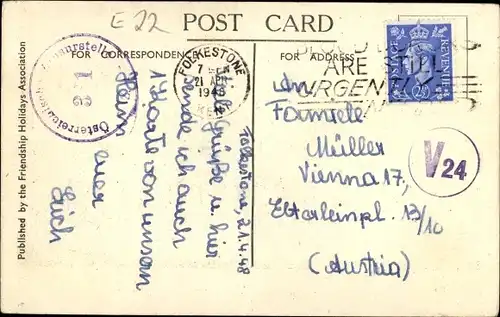 E 22
POST CARD
FOR CORRESPONDENCE
FOR ADDRESS
Published by the Friendship Holidays Association
FOLKESTONE
21 APR
1948
KENT
ARE STILL
URGENTLY
POSTAGE
REVENUE
2½D
Österreichische Zensurstelle
331
Folkestone, 21.4.48
Viele Grüße u. hier
sende ich auch
1 Karte von unserm
Heim euer
Erich
An
Familie
Müller
Vienna 17,
Elterleinpl. 13/10
(Austria)
V 24